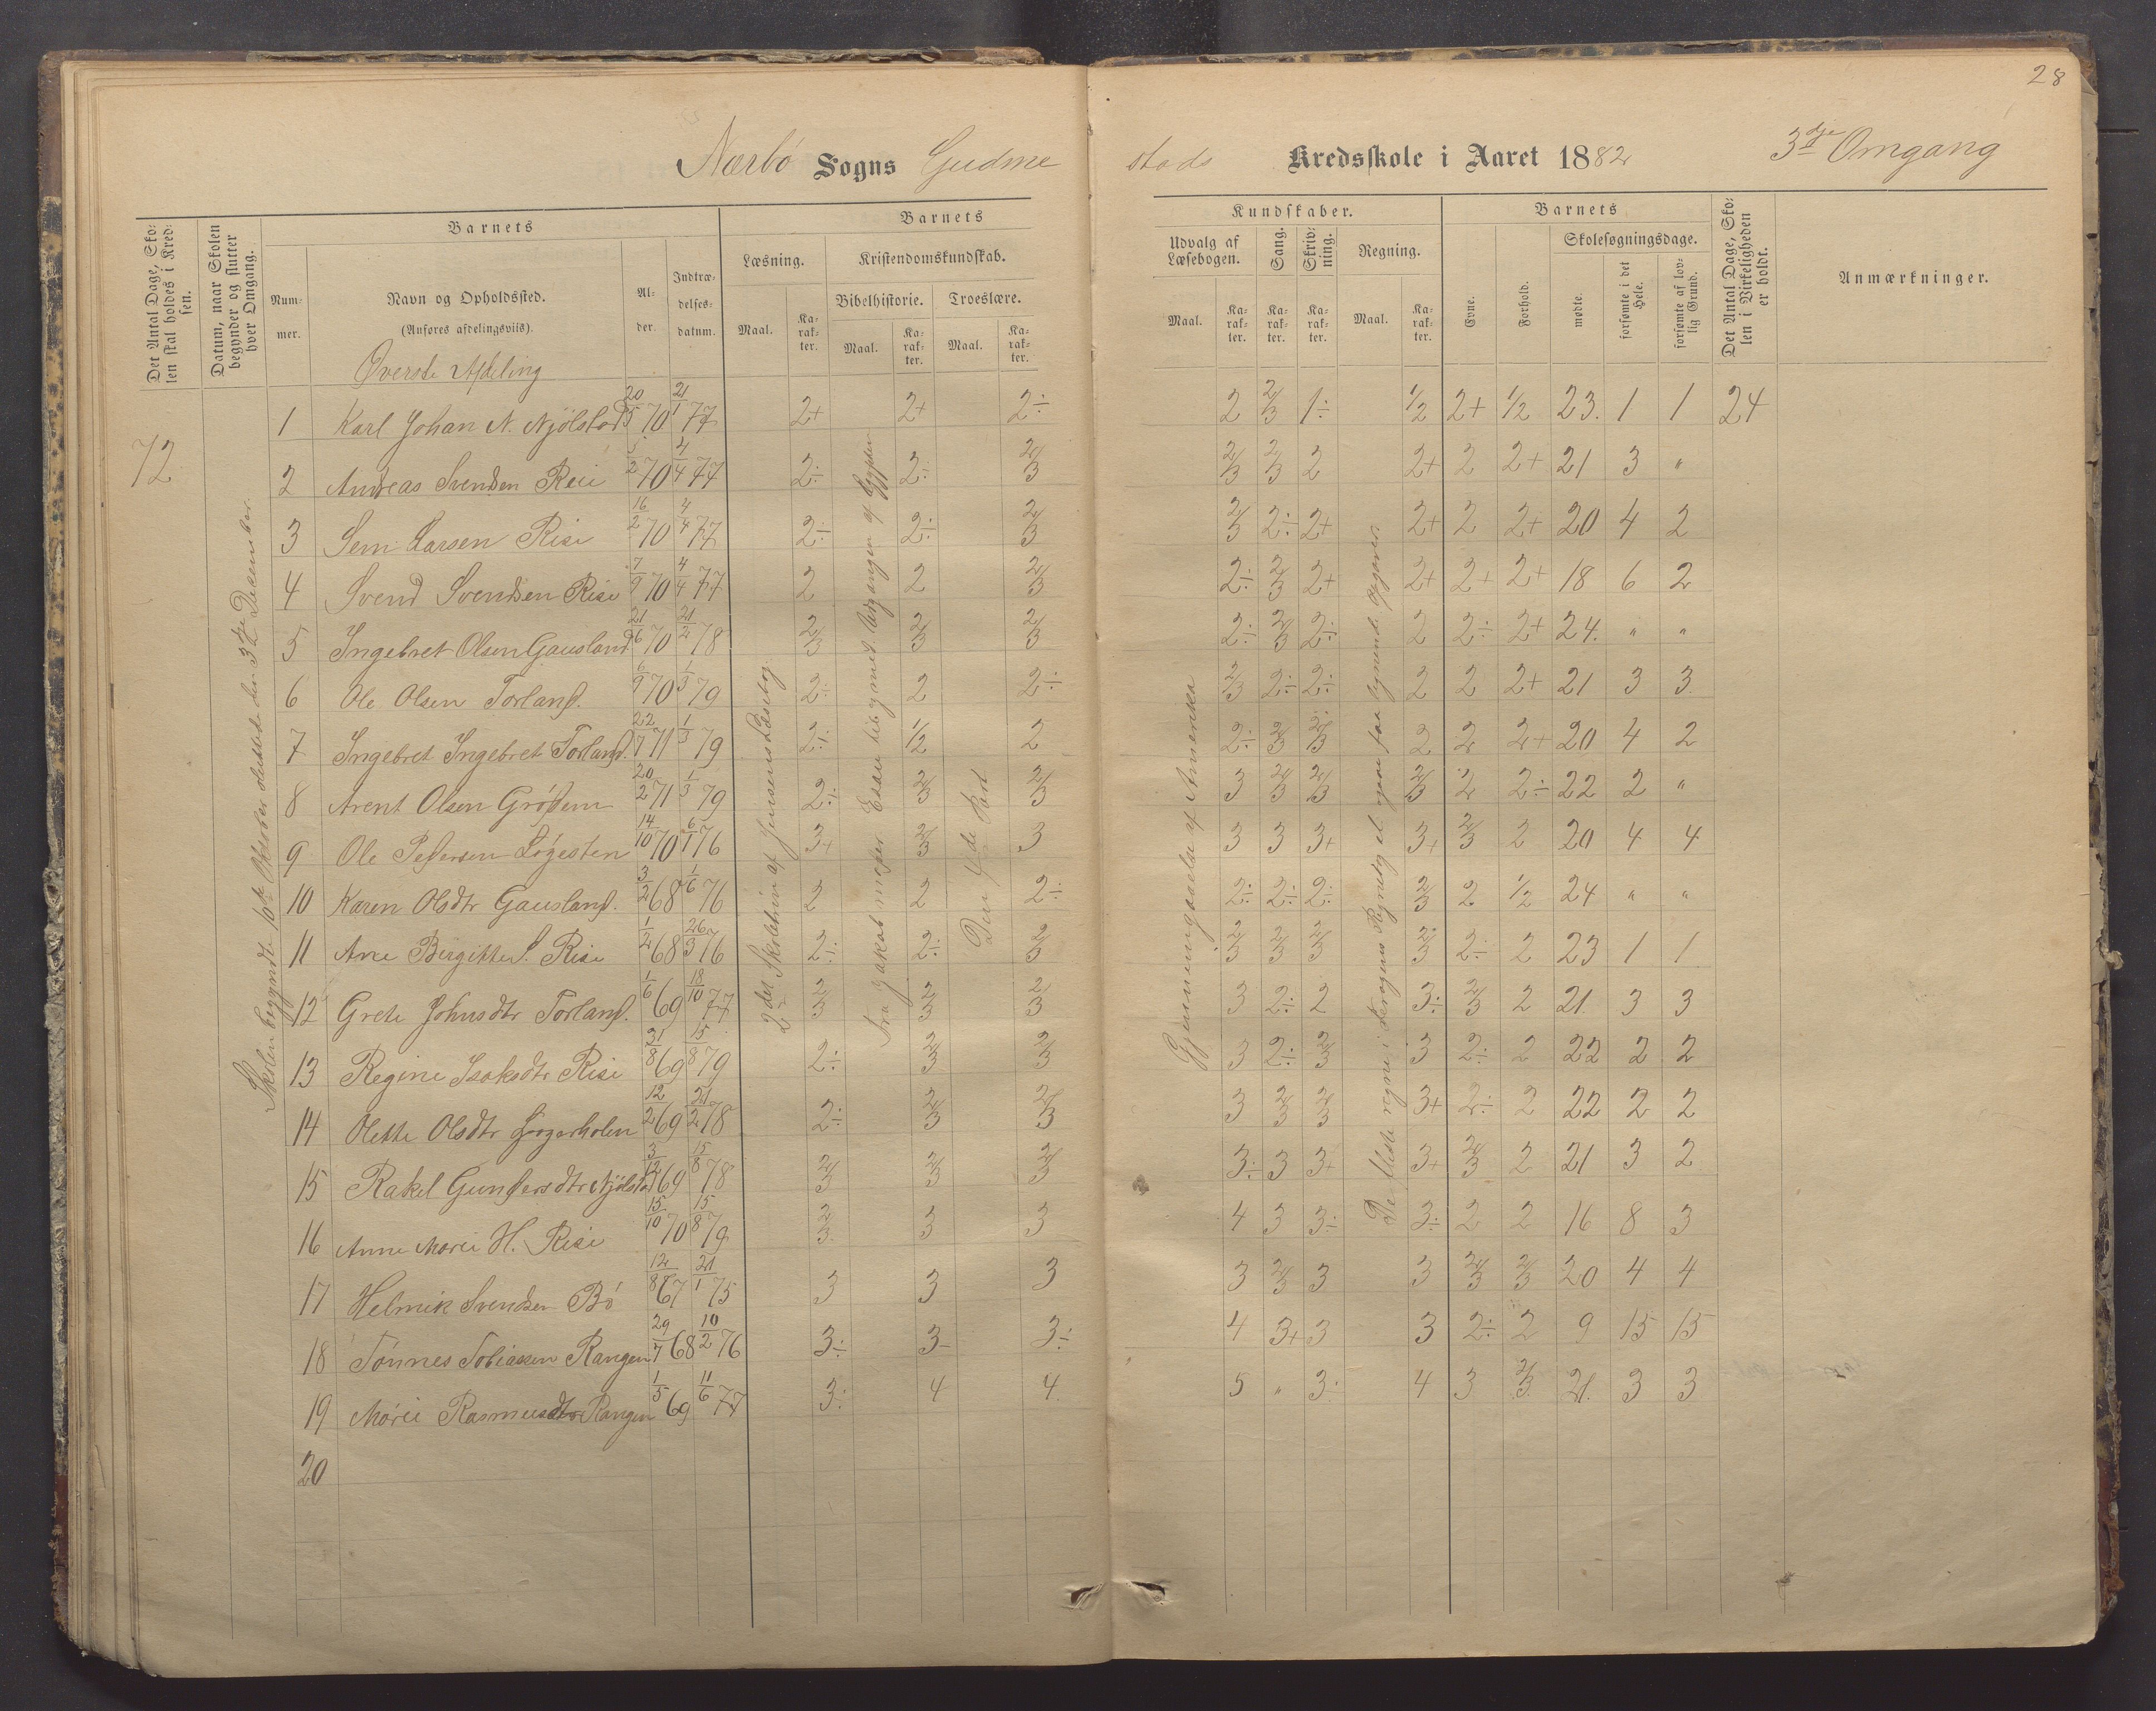 28
Nærbö Sogns Gudme
stads Kredsskole i Aaret 1882 3dje Omgang
Det Antal Dage, Skolen skal holdes i Kredsen.
Datum, naar Skolen begynder og slutter hver Omgang.
Barnets
Nummer.
Navn og Opholdssted.
(Anføres afdelingsviis).
Alder.
Indtrædelsesdatum.
Barnets
Læsning.
Kristendomskundskab.
Bibelhistorie. Troeslære.
Maal. Karakter. Maal. Karakter. Maal. Karakter.
Kundskaber.
Udvalg af Læsebogen.
Sang. Skrivning. Regning.
Maal. Karakter. Karakter. Karakter. Maal. Karakter.
Barnets
Evne. Forhold.
Skolesøgningsdage.
mødte. forsømte i det Hele. forsømte af lovlig Grund.
Det Antal Dage, Skolen i Virkeligheden er holdt.
Anmærkninger.
Överste Afdeling
72
Skolen begyndte 10de Oktober sluttet den 3die December.
2den Skoletrin af Jensens Læsebog
Fra Jakob Esau til Udgangen af Ægypten
Den 4de Part
Gjennemgaaelse af Amerika
1 Karl Johan N. Njölstad 20/5 70 21/1 77 2+ 2+ 2÷ 2 2/3 1÷ 1/2 2+ 1/2 23. 1 1 24
2 Andreas Svendsen Risi 5/2 70 4/4 77 2÷ 2÷ 2/3 2/3 2/3 2 2+ 2 2+ 21 3 "
3 Sem Larsen Risi 16/2 70 4/4 77 2÷ 2÷ 2/3 2/3 2÷ 2+ 2+ 2 2+ 20 4 2
4 Svend Svendsen Risi 7/9 70 4/4 77 2 2 2/3 2÷ 2/3 2+ 2+ 2+ 2+ 18 6 2
5 Ingebret Olsen Gausland 21/6 70 21/2 78 2/3 2/3 2/3 2÷ 2/3 2÷ 2 2÷ 2+ 24. " "
6 Ole Olsen Torland. 6/9 70 1/3 79 2÷ 2 2÷ 2/3 2÷ 2÷ 2 2 2+ 21 3 3
7 Ingebret Ingebret Torland. 22/7 71 1/3 79 2÷ 1/2 2 2÷ 2/3 2/3 2 2 2+ 20 4 2
8 Arent Olsen Grödem 20/2 71 1/3 79 2÷ 2/3 2/3 3 2/3 2/3 2/3 2 2÷ 22 2 "
9 Ole Pedersen Lögesten 14/10 70 6/1 76 3+ 2/3 3 3 3 3+ 3+ 2/3 2 20 4 4
10 Karen Olsdtr Gausland. 3/2 68 1/6 76 2 2 2÷ 2÷ 2÷ 2÷ 2/3 2 1/2 24 " "
11 Ane Birgitte S. Risi 1/2 68 26/3 76 2÷ 2÷ 2/3 2/3 2/3 2/3 2/3 2÷ 2 23 1 1
12 Grete Johnsdtr Torland. 1/6 69 18/10 77 2/3 2/3 2/3 3 2÷ 2 3÷ 2/3 2 21. 3 3
13 Regine Isaksdtr Risi 31/8 69 15/8 79 2÷ 2/3 2/3 3 2÷ 2/3 3 2÷ 2 22 2 2
14 Olette Olsdtr 12/2 69 21/2 78 2÷ 2/3 2/3 3 2/3 2/3 3+ 2÷ 2 22 2 2
15 Rakel Gundersdtr Njölstad 3/12 69 15/8 78 2/3 2/3 2/3 3÷ 3 3+ 3+ 2/3 2 21 3 2
16 Anne Marie H. Risi 15/10 70 15/8 79 2/3 3 3 4 3 3÷ 3÷ 2 2 16 8 3
17 Helmik Svendsen Bö 12/8 67 21/1 75 3 3 3 3 2/3 3 3 2/3 2/3 20 4 4
18 Tönnes Tobiassen Rangen 29/7 68 10/2 76 3÷ 3 3÷ 4 3+ 3 3 2÷ 2 9 15 15
19 Marie Rasmusdtr Rangen 1/5 69 11/6 77 3÷ 4 4 5 " 3÷ 4 3 2/3 21. 3 3
20